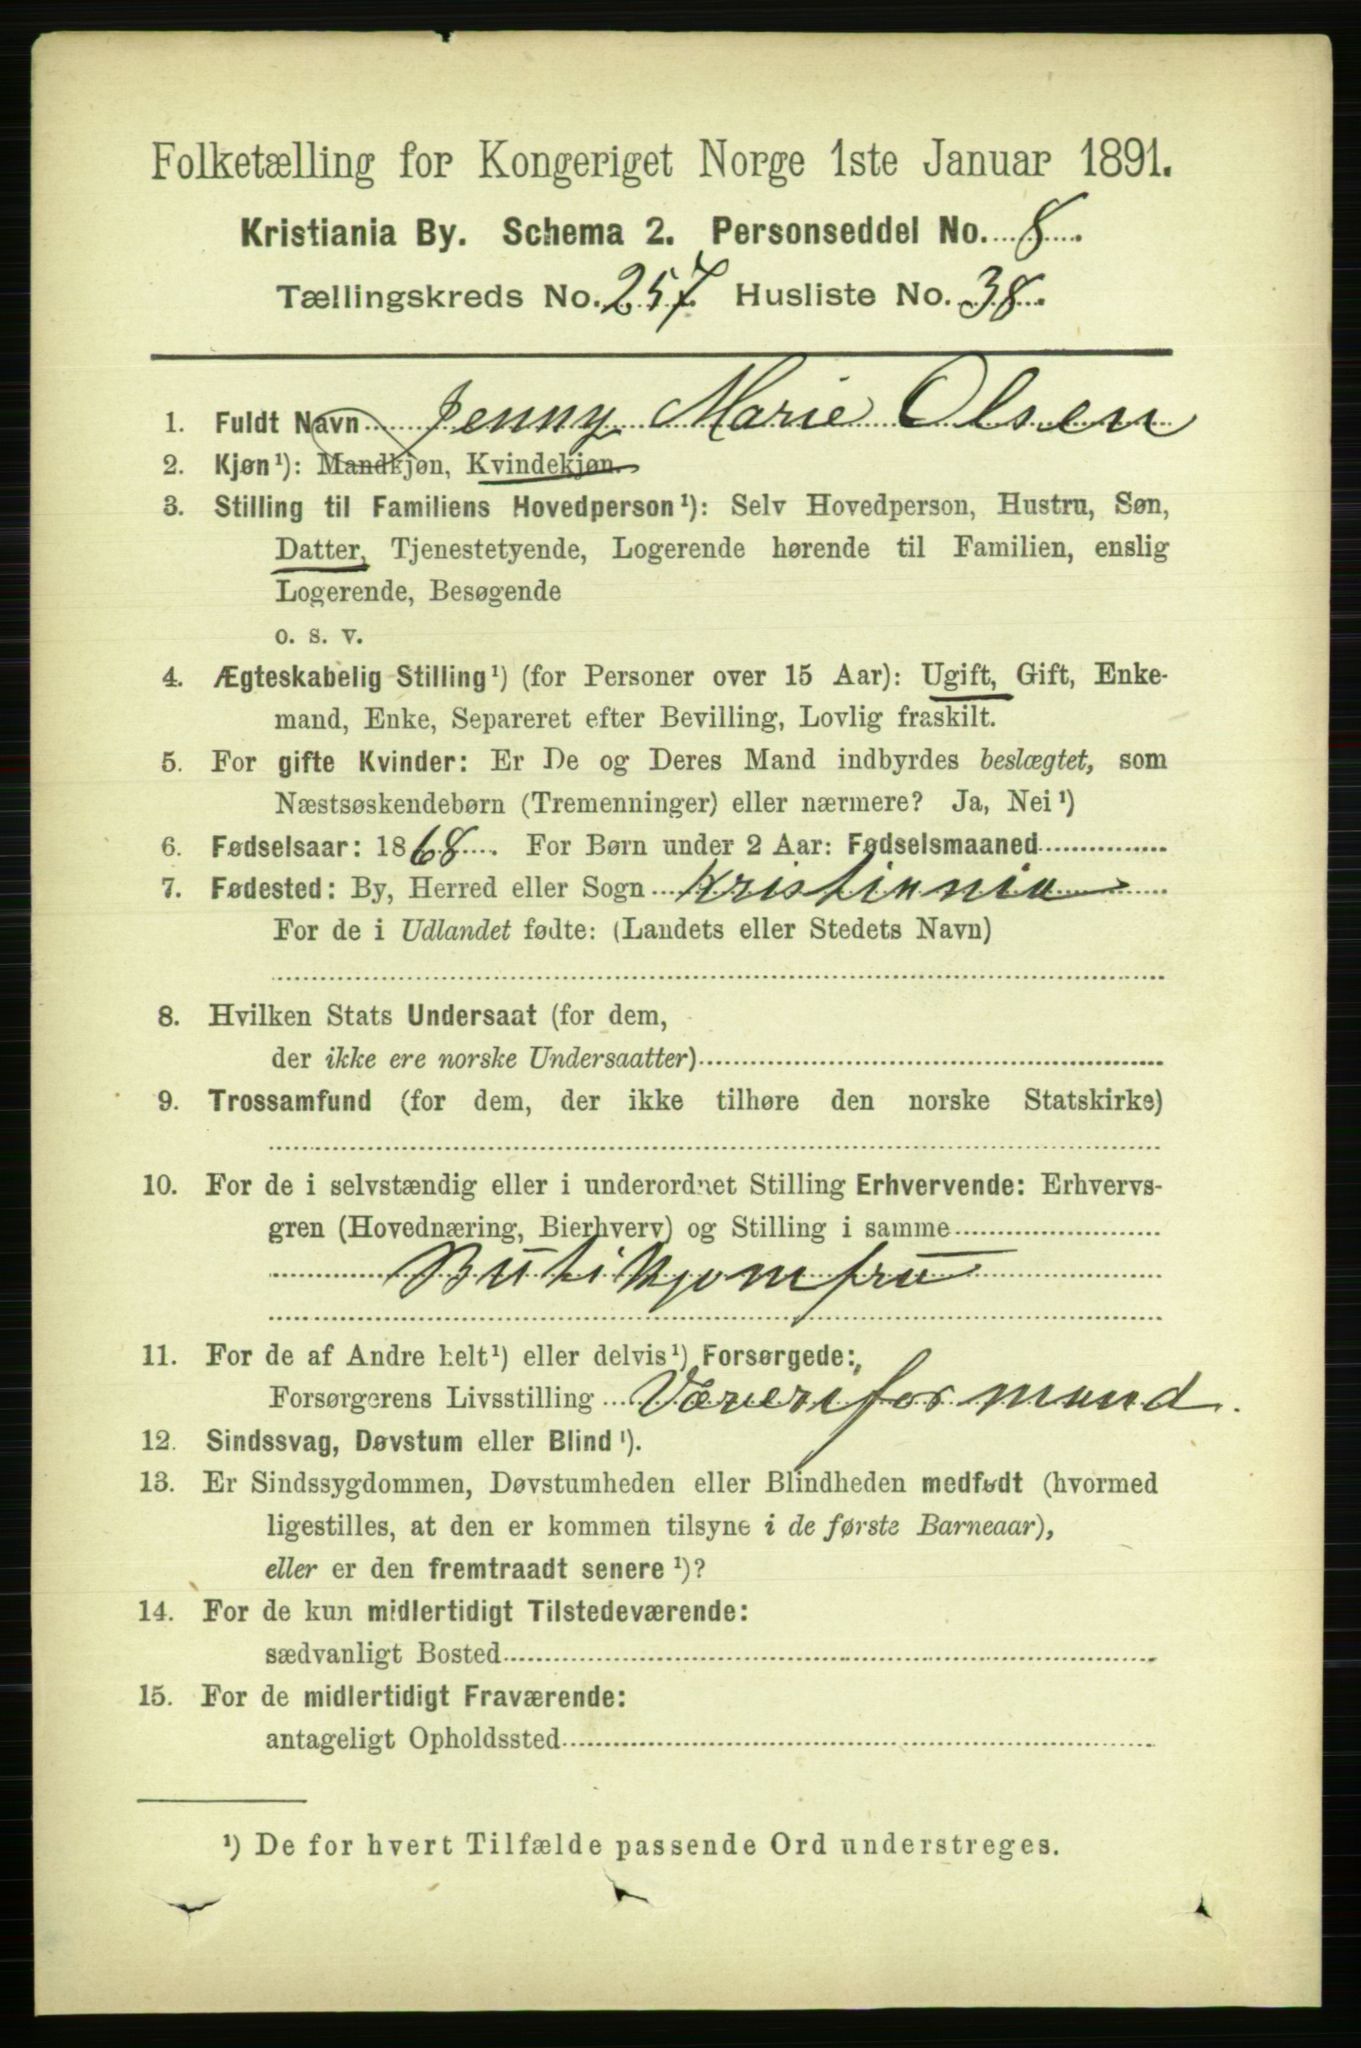 Folketælling for Kongeriget Norge 1ste Januar 1891.
Kristiania By. Schema 2. Personseddel No. 8.
Tællingskreds No. 257 Husliste No. 38.
1. Fuldt Navn Jenny Marie Olsen
2. Kjøn¹): Mandkjøn, Kvindekjøn.
3. Stilling til Familiens Hovedperson¹): Selv Hovedperson, Hustru, Søn,
Datter, Tjenestetyende, Logerende hørende til Familien, enslig
Logerende, Besøgende
o. s. v.
4. Ægteskabelig Stilling¹) (for Personer over 15 Aar): Ugift, Gift, Enke-
mand, Enke, Separeret efter Bevilling, Lovlig fraskilt.
5. For gifte Kvinder: Er De og Deres Mand indbyrdes beslægtet, som
Næstsøskendebørn (Tremenninger) eller nærmere? Ja, Nei¹)
6. Fødselsaar: 1868. For Børn under 2 Aar: Fødselsmaaned
7. Fødested: By, Herred eller Sogn Kristiania
For de i Udlandet fødte: (Landets eller Stedets Navn)
8. Hvilken Stats Undersaat (for dem,
der ikke ere norske Undersaatter)
9. Trossamfund (for dem, der ikke tilhøre den norske Statskirke)
10. For de i selvstændig eller i underordnet Stilling Erhvervende: Erhvervs-
gren (Hovednæring, Bierhverv) og Stilling i samme
Butikjomfru
11. For de af Andre helt¹) eller delvis¹) Forsørgede:
Forsørgerens Livsstilling Væveriformand.
12. Sindssvag, Døvstum eller Blind¹).
13. Er Sindssygdommen, Døvstumheden eller Blindheden medfødt (hvormed
ligestilles, at den er kommen tilsyne i de første Barneaar),
eller er den fremtraadt senere¹)?
14. For de kun midlertidigt Tilstedeværende:
sædvanligt Bosted
15. For de midlertidigt Fraværende:
antageligt Opholdssted
¹) De for hvert Tilfælde passende Ord understreges.